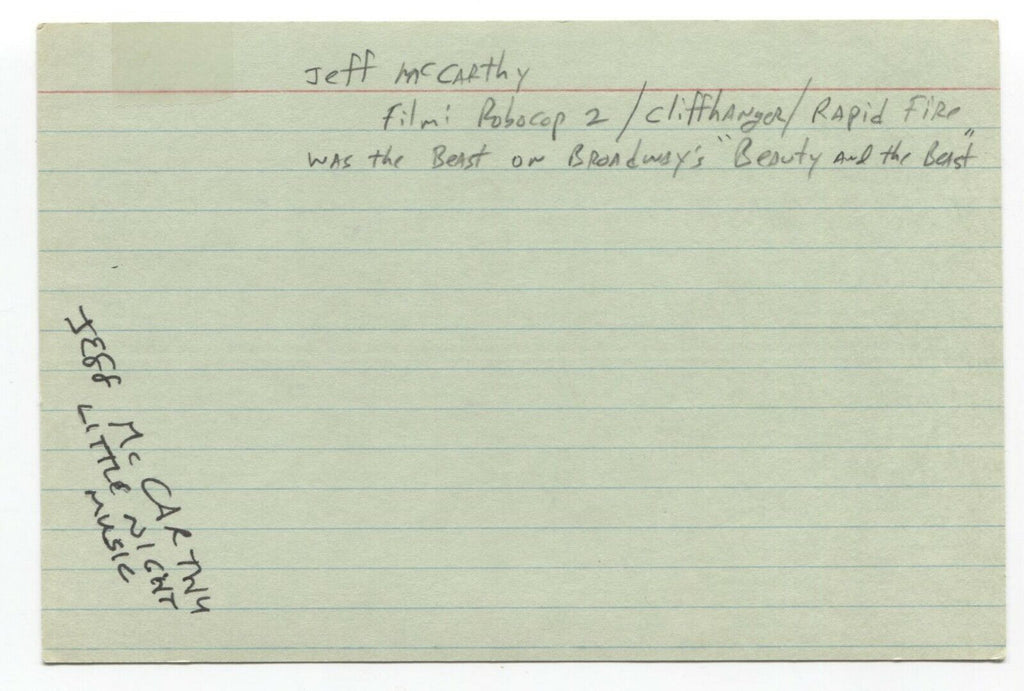 Jeff McCarthy
Film: Robocop 2 / Cliffhanger / Rapid Fire
was the Beast on Broadway's "Beauty and the Beast"
JEFF McCARTHY
LITTLE NIGHT
MUSIC